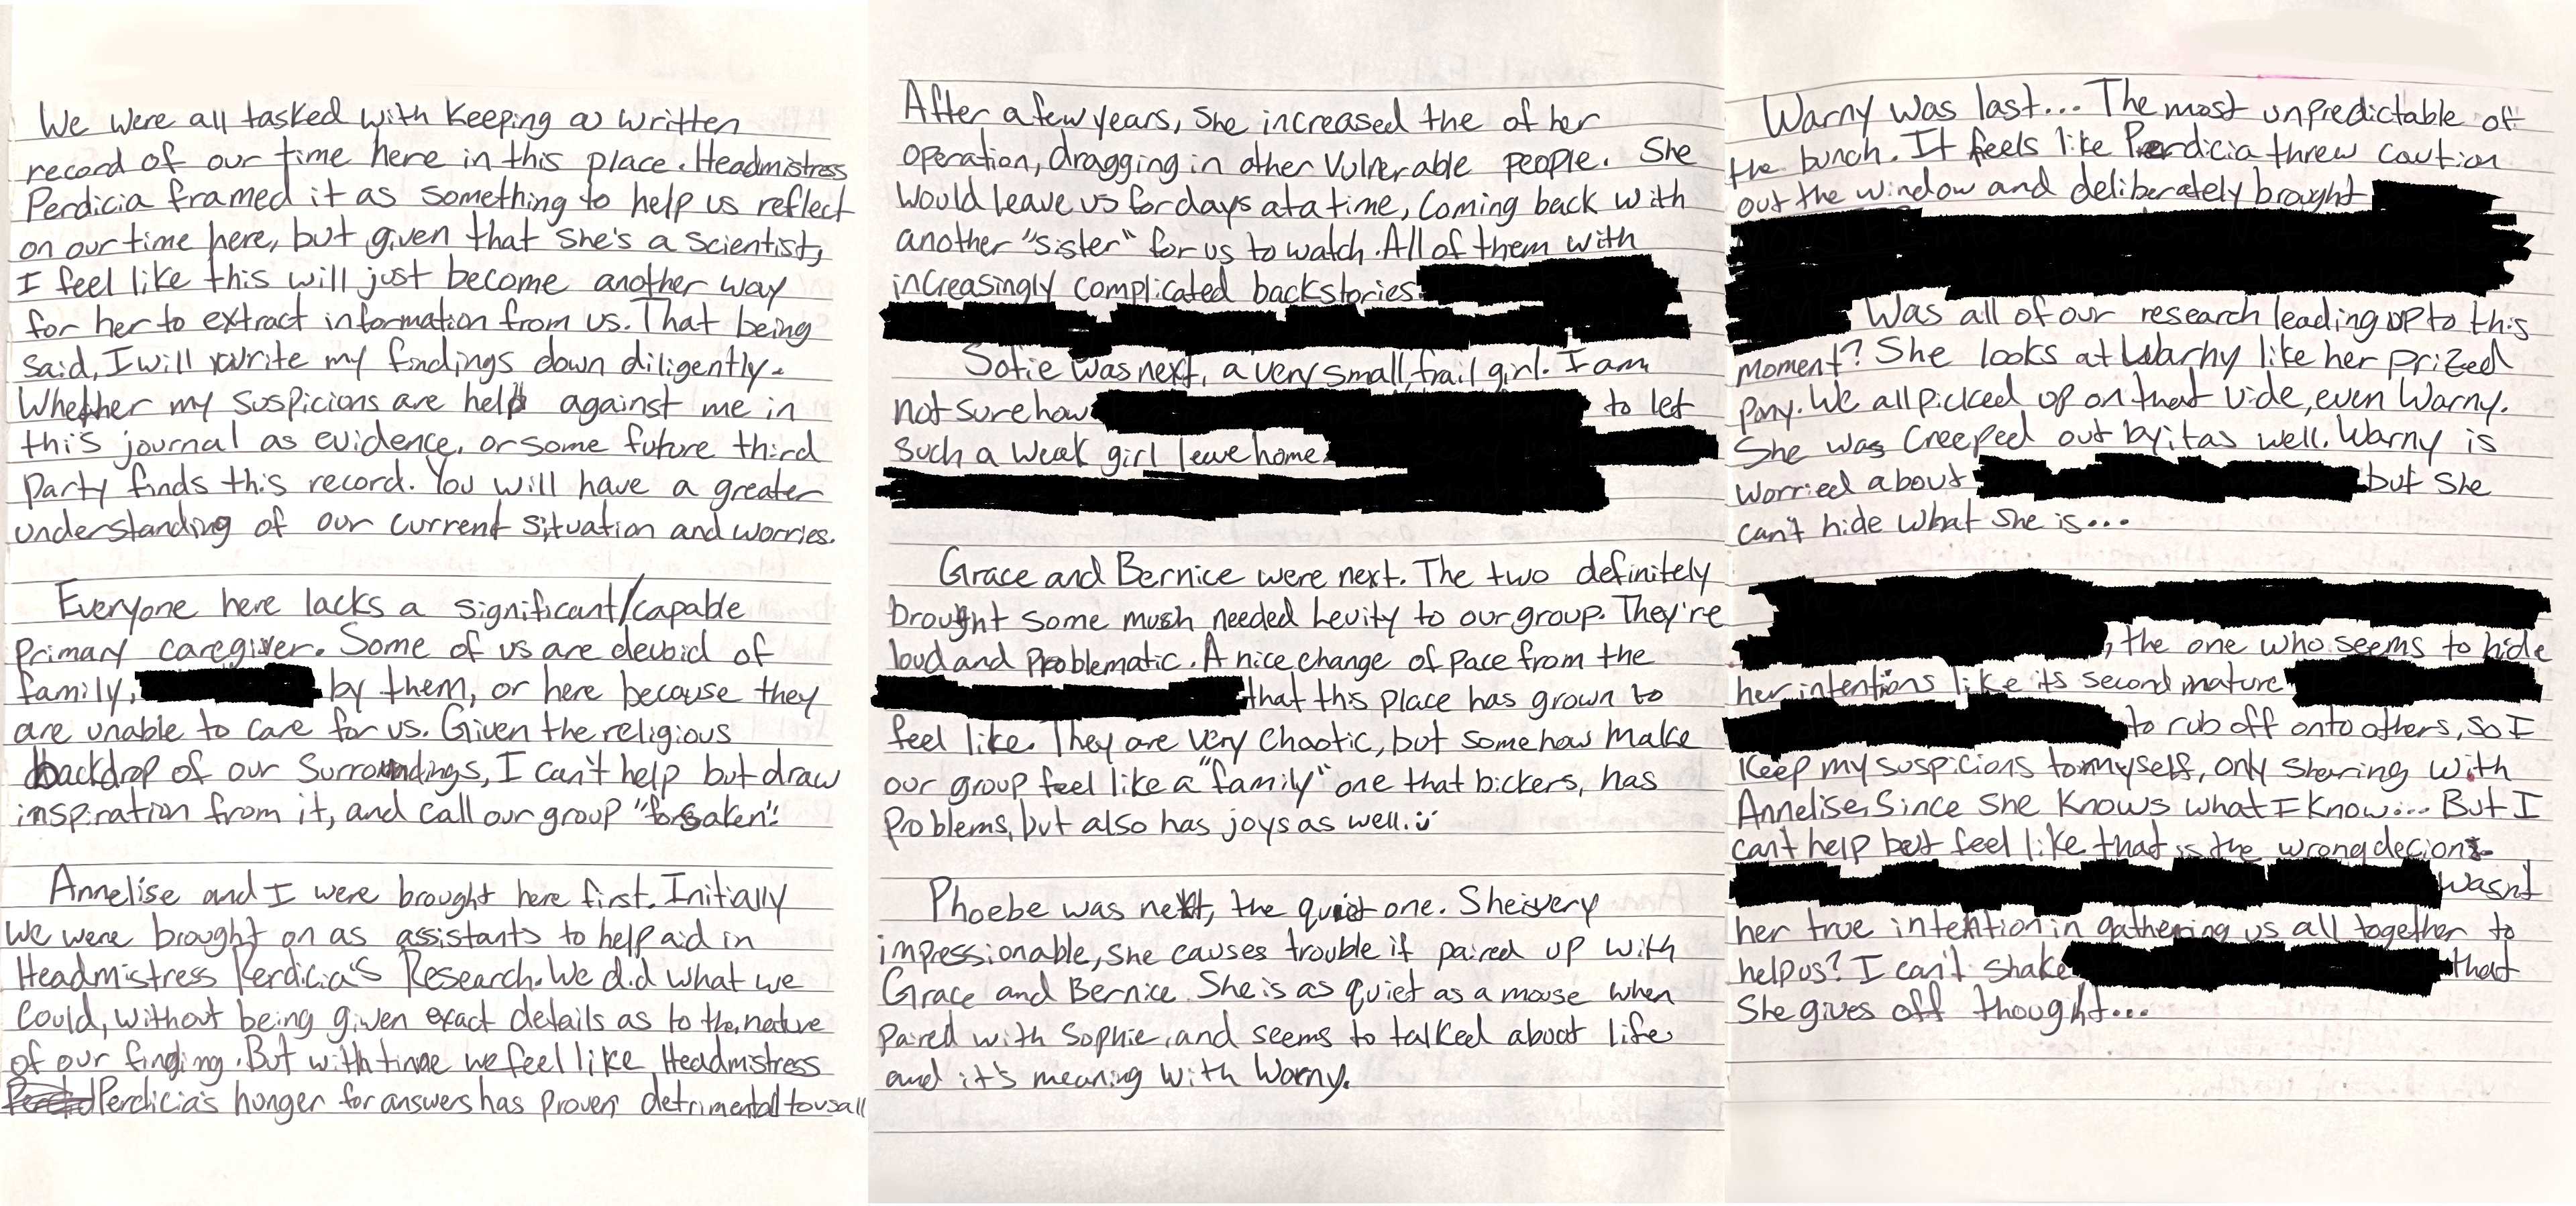 We were all tasked with keeping a written
record of our time here in this place. Headmistress
Perdicia framed it as something to help us reflect
on our time here, but given that she's a scientist,
I feel like this will just become another way
for her to extract information from us. That being
said, I will write my findings down diligently.
Whether my suspicions are held against me in
this journal as evidence, or some future third
party finds this record. You will have a greater
understanding of our current situation and worries.
Everyone here lacks a significant/capable
primary caregiver. Some of us are devoid of
family, by them, or here because they
are unable to care for us. Given the religious
backdrop of our surroundings, I can't help but draw
inspiration from it, and call our group "forsaken".
Annelise and I were brought here first. Initially
we were brought on as assistants to help aid in
Headmistress Perdicia's Research. We did what we
could, without being given exact details as to the nature
of our finding. But with time we feel like Headmistress
Perdicia's hunger for answers has proven detrimental to us all
After a few years, she increased the of her
operation, dragging in other vulnerable people. She
would leave us for days at a time, coming back with
another "sister" for us to watch. All of them with
increasingly complicated backstories.
Sofie was next, a very small, frail girl. I am
not sure how to let
such a weak girl leave home.
Grace and Bernice were next. The two definitely
brought some much needed levity to our group. They're
loud and problematic. A nice change of pace from the
that this place has grown to
feel like. They are very chaotic, but somehow make
our group feel like a "family" one that bickers, has
problems, but also has joys as well. ü
Phoebe was next, the quiet one. She is very
impressionable, she causes trouble if paired up with
Grace and Bernice. She is as quiet as a mouse when
paired with Sophie, and seems to talked about life
and it's meaning with Warny.
Warny was last... The most unpredictable of
the bunch. It feels like Perdicia threw caution
out the window and deliberately brought
Was all of our research leading up to this
moment? She looks at Warny like her prized
pony. We all picked up on that vibe, even Warny.
She was creeped out by it as well. Warny is
worried about but she
can't hide what she is...
, the one who seems to hide
her intentions like its second nature
to rub off onto others, so I
keep my suspicions to myself, only sharing with
Annelise, since she knows what I know... But I
can't help but feel like that is the wrong decion.
wasn't
her true intention in gathering us all together to
help us? I can't shake that
she gives off though...